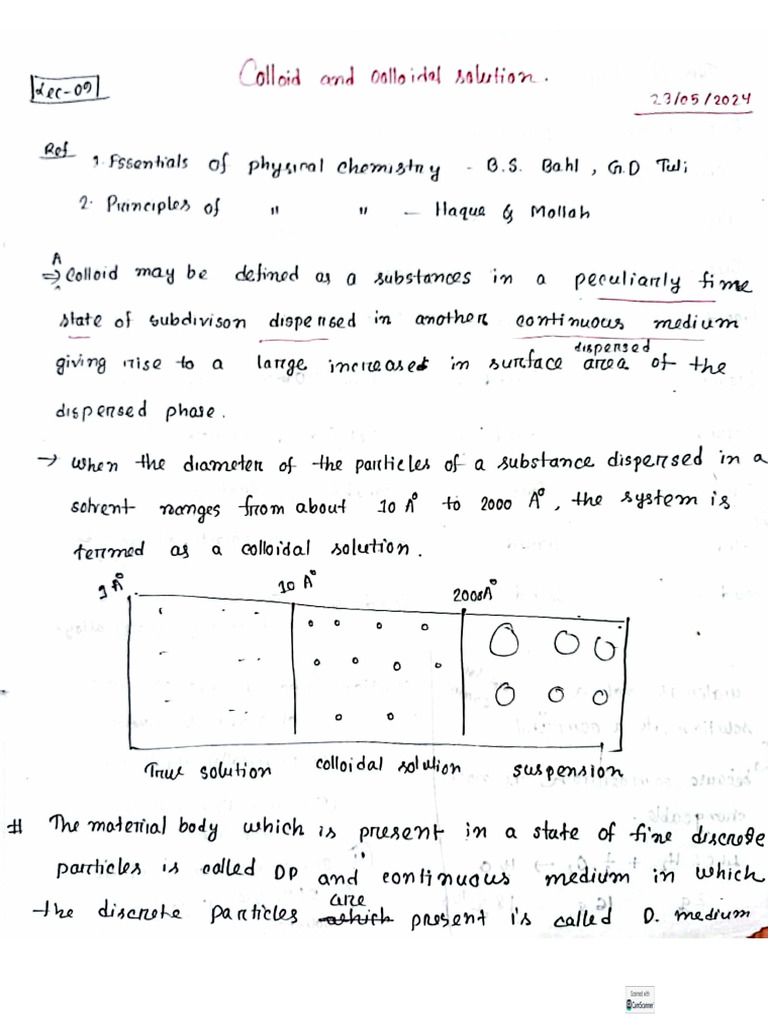 Lec-09
Colloid and colloidal solution.
23/05/2024
Ref
1. Essentials of physical chemistry - B.S. Bahl, G.D Tuli
2. Principles of " " - Haque & Mollah
A
⇒ Colloid may be defined as a substances in a peculiarly fine
state of subdivison dispersed in another continuous medium
giving rise to a large increased in surface area of the
dispersed
dispersed phase.
→ When the diameter of the particles of a substance dispersed in a
solvent ranges from about 10 A° to 2000 A°, the system is
termed as a colloidal solution.
1 A° 10 A° 2000A°
True solution colloidal solution suspension
# The material body which is present in a state of fine discrete
particles is called DP and continuous medium in which
the discrete particles which are present is called D. medium
Scanned with
CamScanner